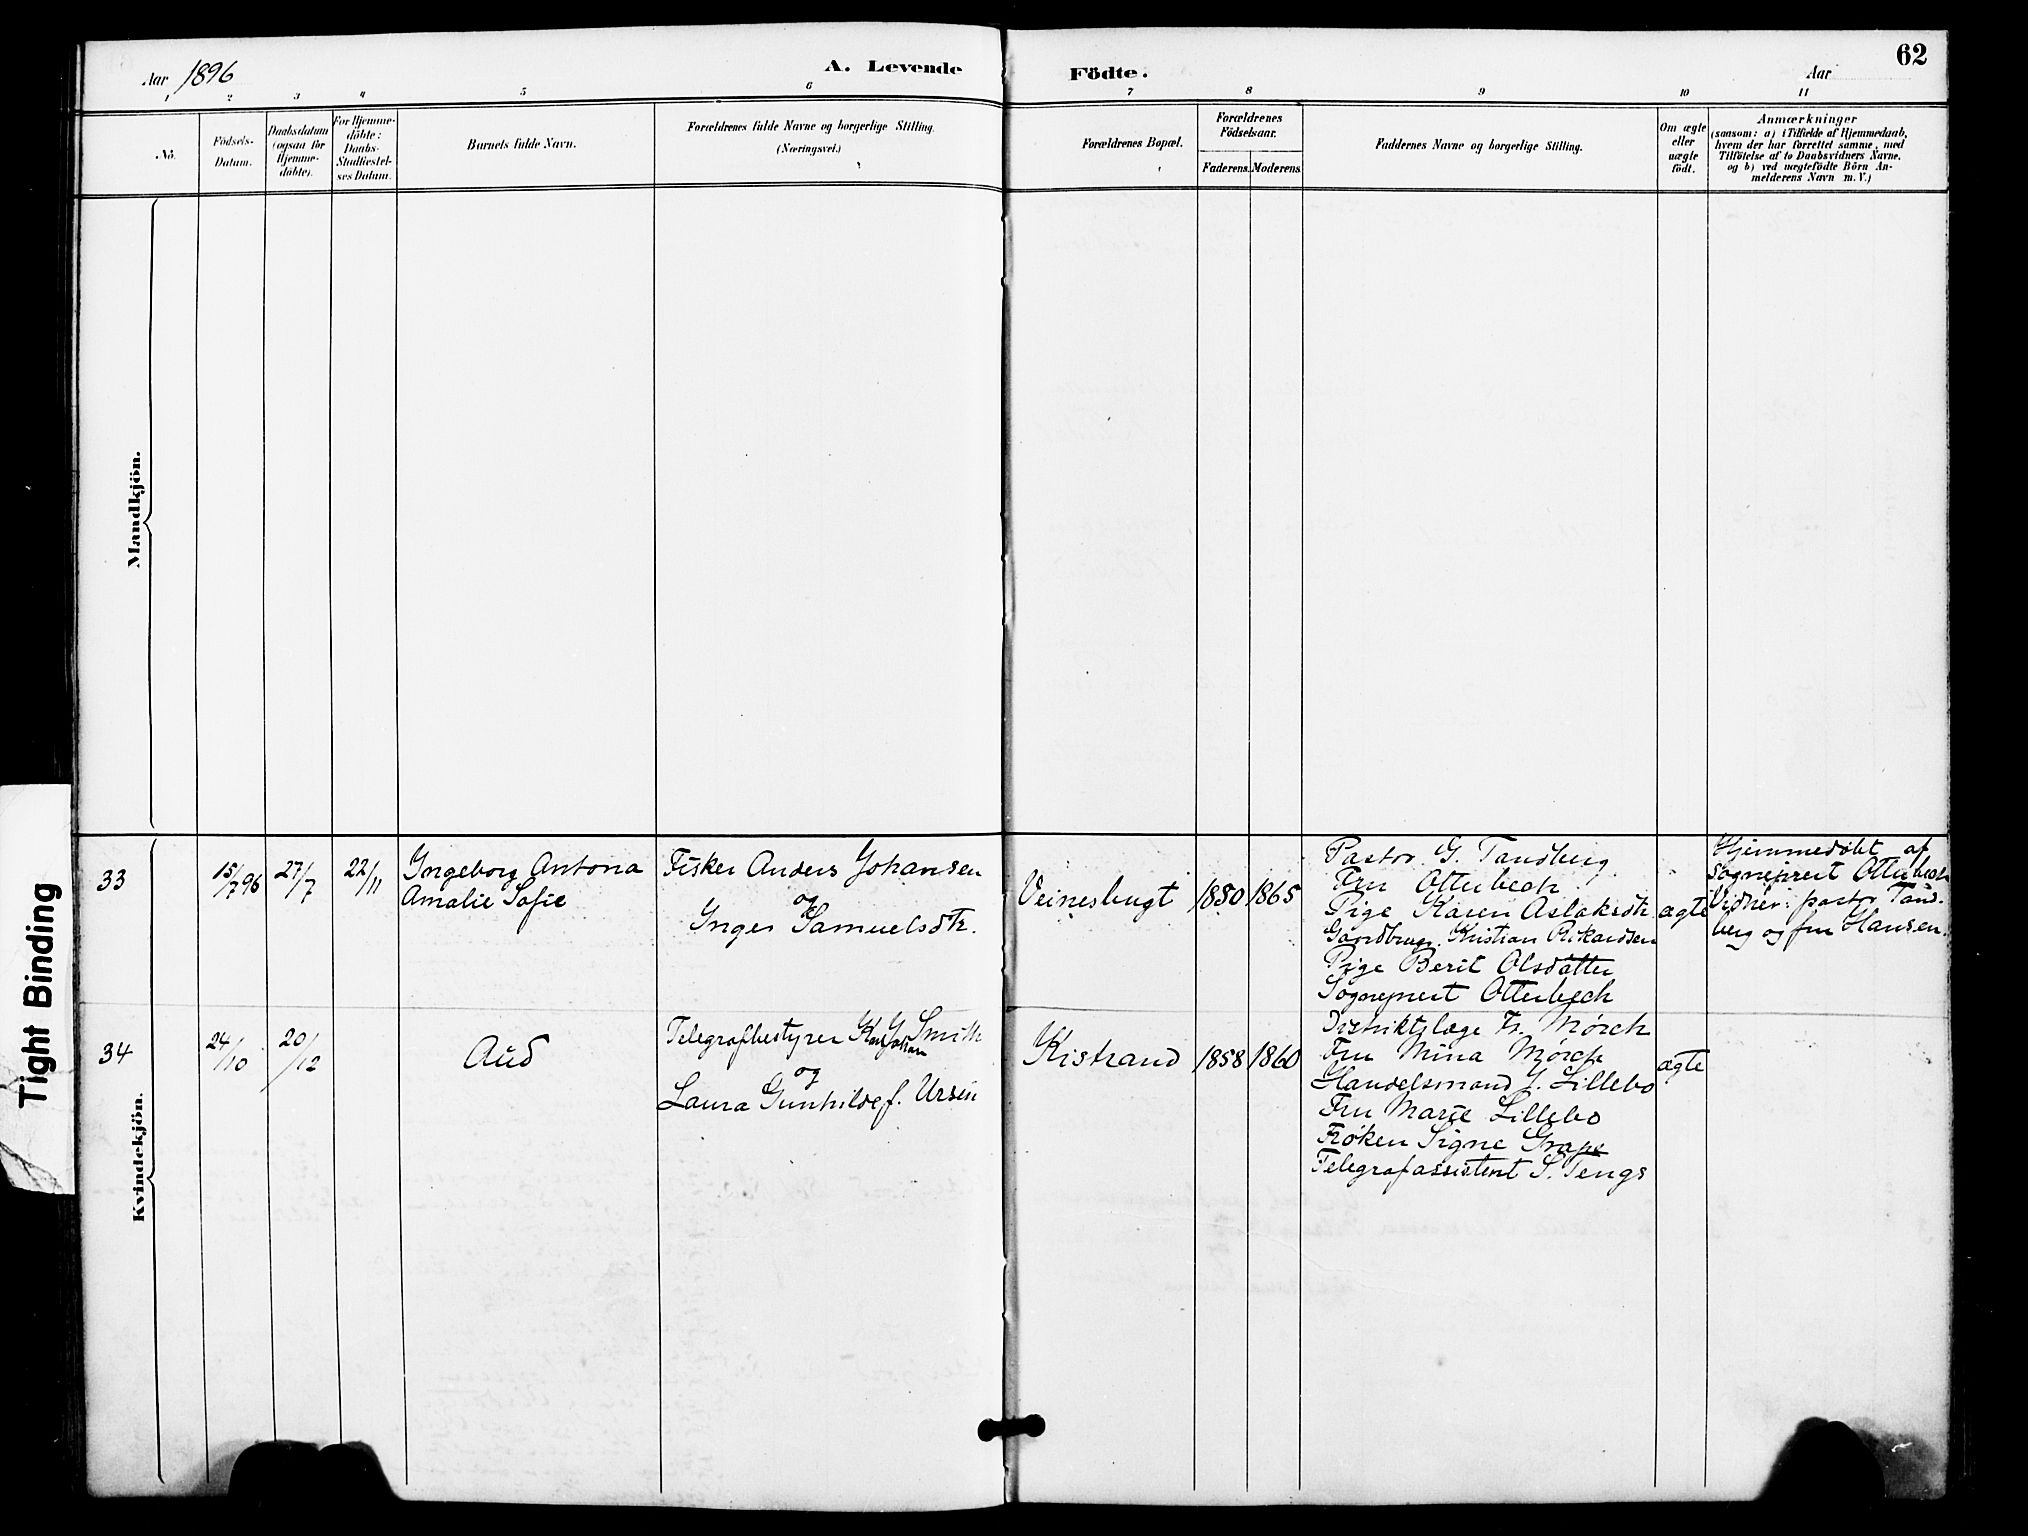 62
Aar 1896
A. Levende
Födte.
Aar
1 2 3 4 5 6 7 8 9 10 11
No.
Födsels-
Datum.
Daabsdatum
(ogsaa for
Hjemme-
döbte).
For Hjemme-
döbte:
Daabs-
Stadfæstel-
ses Datum.
Barnets fulde Navn.
Forældrenes fulde Navne og borgerlige Stilling.
(Næringsvei.)
Forældrenes Bopæl.
Forældrenes
Födselsaar.
Faderens. Moderens.
Faddernes Navne og borgerlige Stilling.
Om ægte
eller
uægte
födt.
Anmærkninger
(saasom: a) i Tilfælde af Hjemmedaab,
hvem der har forrettet samme, med
Tilföielse af to Daabsvidners Navne,
og b) ved uægtefödte Börn An-
melderens Navn m. V.)
Mandkjön.
Kvindekjön.
33
15/7 96
27/7
22/11
Ingeborg Antona
Amalie Sofie
Fisker Anders Johansen
og
Inger Samuelsdtr.
Veinesbugt
1850
1865
Pastor G. Tandberg
Fru Otterbech
Pige Karen Aslaksdtr.
Gaardbrug. Kristian Rikardsen
Pige Berit Olsdatter
Sogneprest Otterbech
ægte
Hjemmedøbt af
sogneprest Otterbech
Vidner: pastor Tand-
berg og fru Hansen.
34
24/10
20/12
Aud
Telegrafbestyrer Karl Johan Smith
og
Laura Gunhilde f. Ursin
Kistrand
1858
1860
Distriktslæge Fr. Mørch
Fru Mina Mørch
Handelsmand J. Lillebo
Fru Marie Lillebo
Frøken Signe Grape
Telegrafassistent S. Tengs
ægte
Tight Binding